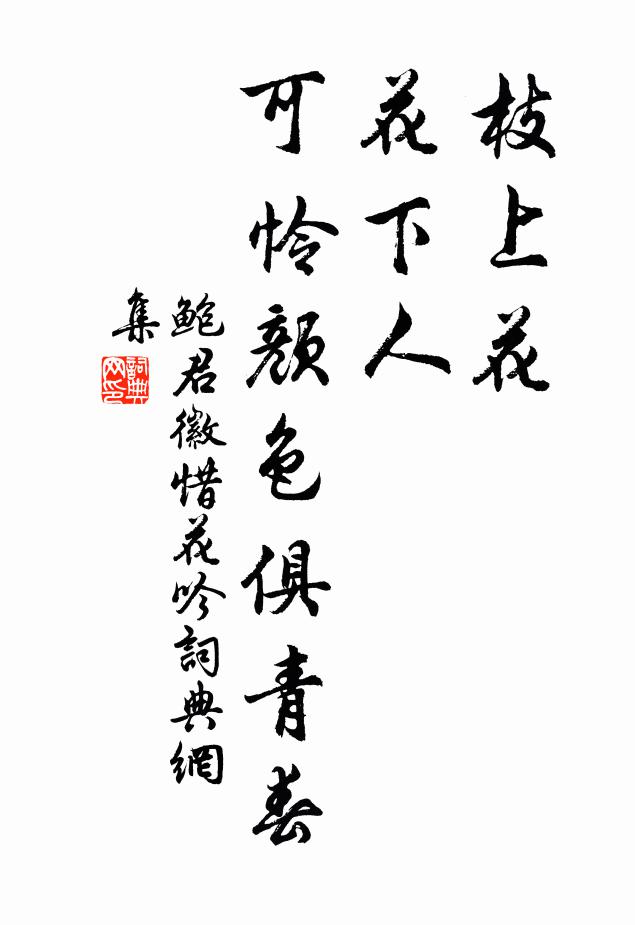 枝上花
花下人
可怜顔色俱青春
鮑君徽惜花吟詞典網
集
詞典
网印